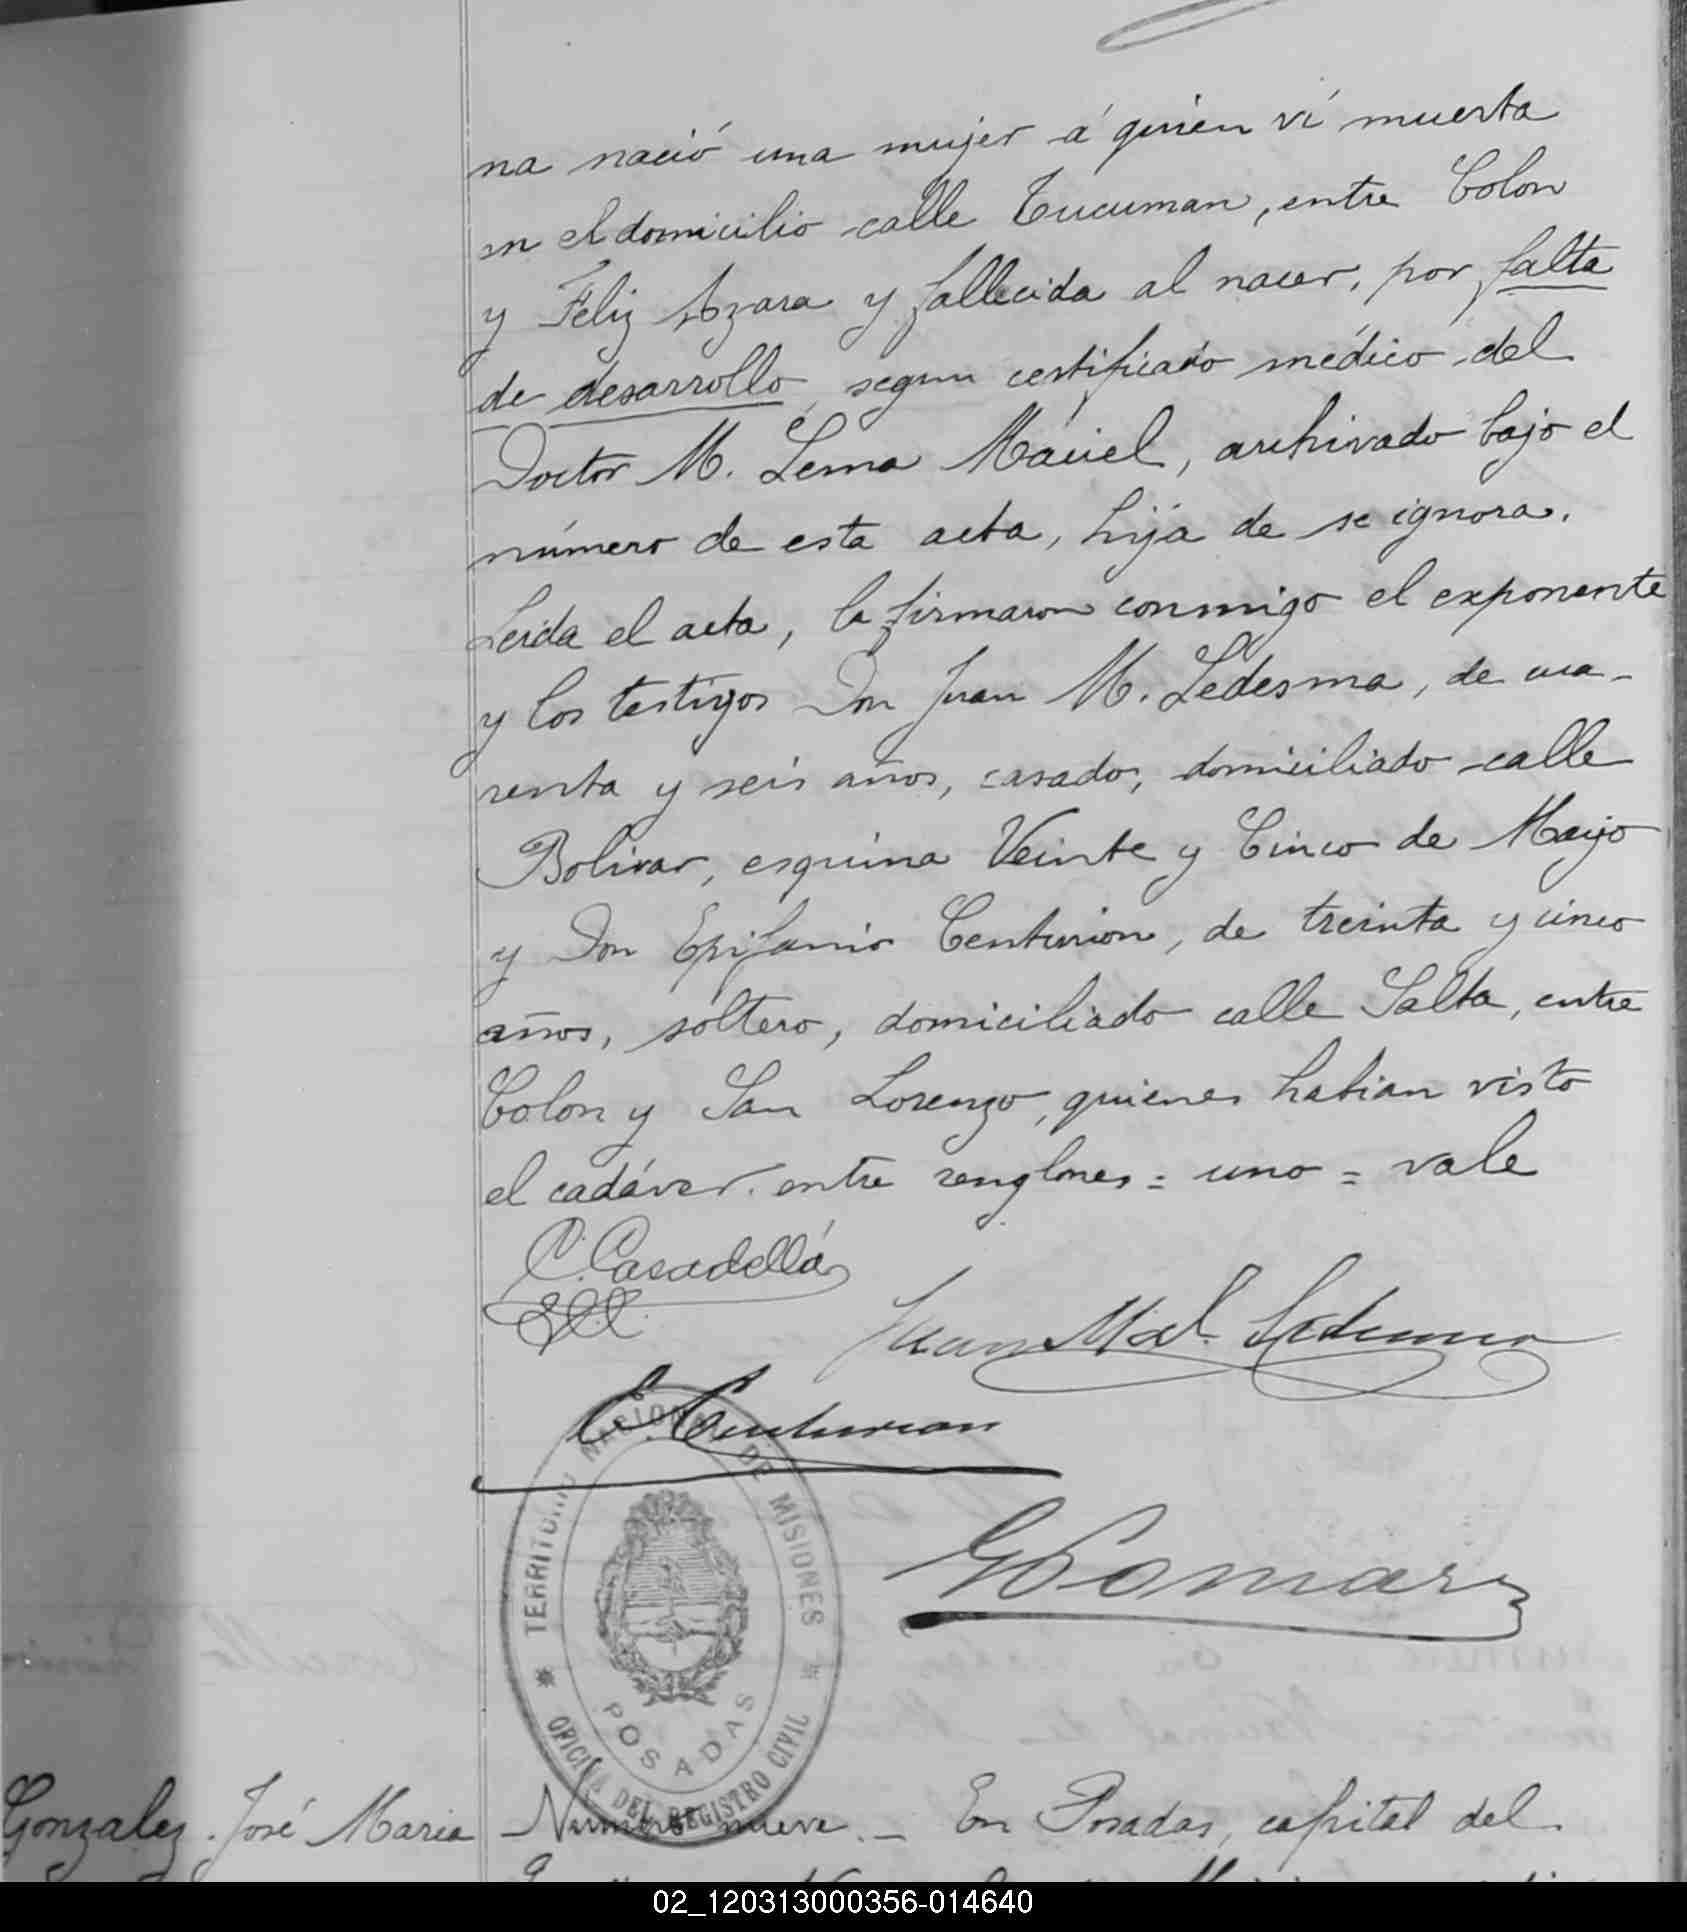 na nació una mujer á quien ví muerta
en el domicilio calle Tucuman, entre Colon
y Feliz Azara y fallecida al nacer, por falta
de desarrollo, segun certificado médico del
Doctor M. Lema Maciel, archivado bajo el
número de esta acta, hija de se ignora.
Leida el acta, la firmaron conmigo el exponente
y los testigos Don Juan M. Ledesma, de cua-
renta y seis años, casado, domiciliado calle
Bolivar, esquina Veinte y Cinco de Mayo
y Don Epifanio Centurion, de treinta y cinco
años, soltero, domiciliado calle Salta, entre
Colon y San Lorenzo, quienes habian visto
el cadáver. entre renglones = uno = vale
C. Casadellá
Juan Ml. Ledesma
E. Centurion
TERRITORIO NACIONAL DE MISIONES
POSADAS
OFICINA DEL REGISTRO CIVIL
Gonzalez. José Maria Numero nueve. _ En Posadas, capital del
02_120313000356-014640